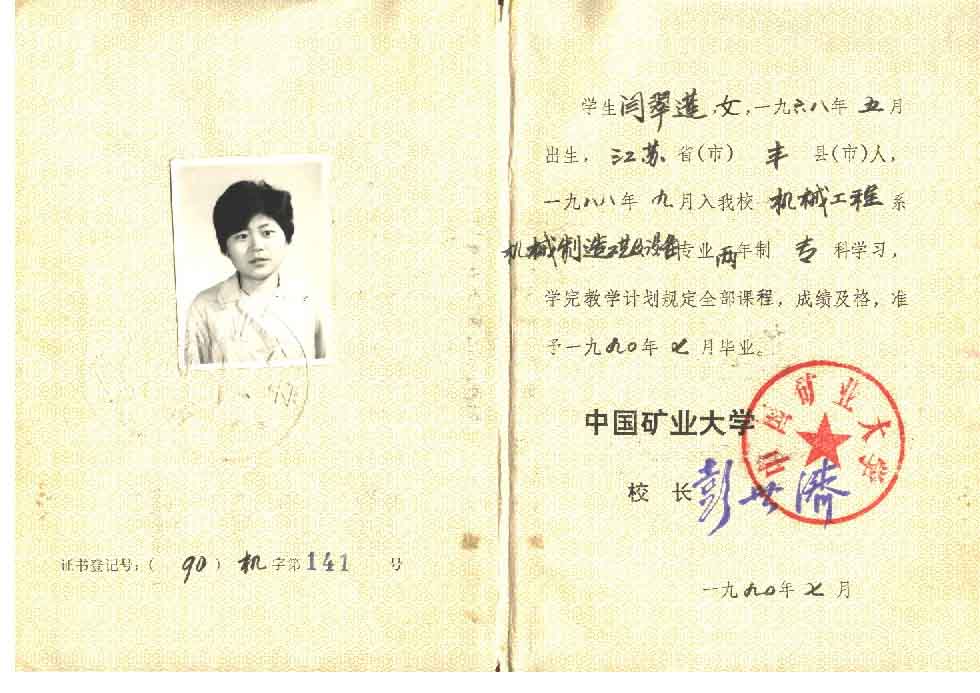 证书登记号：（ 90 ） 机 字第 141 号
学生 闫翠莲，女，一九六八年 五 月
出生， 江苏 省（市） 丰 县（市）人，
一九八八年 九 月入我校 机械工程 系
机械制造工艺及设备专业 两年制 专 科学习，
学完教学计划规定全部课程，成绩及格，准
予一九九〇年 七 月毕业。
中国矿业大学
中国矿业大学
校 长 彭世济
一九九〇年 七 月